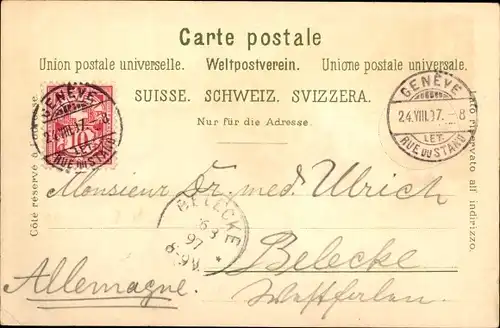 Carte postale
Union postale universelle. Weltpostverein. Unione postale universale.
SUISSE. SCHWEIZ. SVIZZERA.
Nur für die Adresse.
Côté réservé à l'adresse.
Lato riservato all' indirizzo.
GENÈVE
24.VIII.97. 8
LET.
RUE DU STAND
10
GENÈVE
24.VIII.97. 8
LET.
RUE DU STAND
Monsieur Dr. med. Ulrich
BELECKE
97
Belecke
Allemagne.
Westfalen.